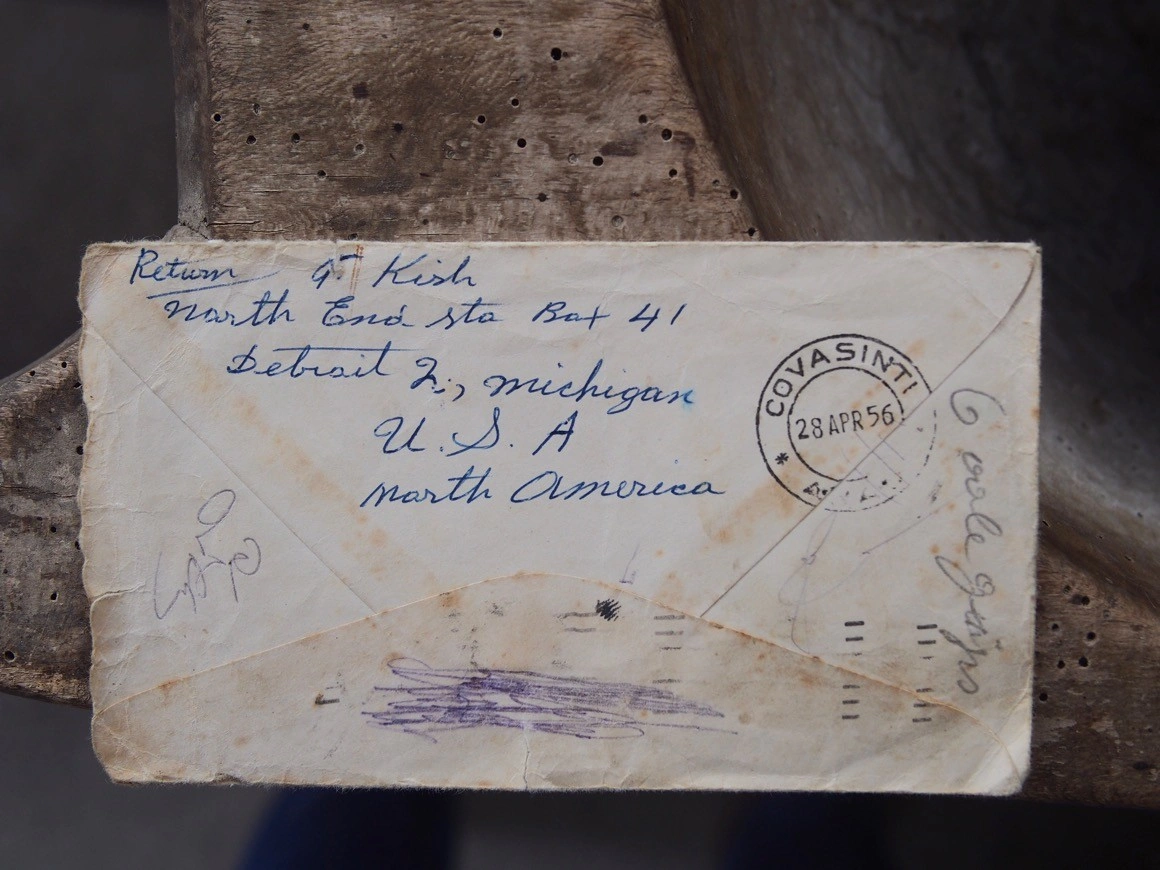 Return G. Kish
North End Sta Box 41
Detroit 2, Michigan
U. S. A
North America
COVASINTI
28 APR 56